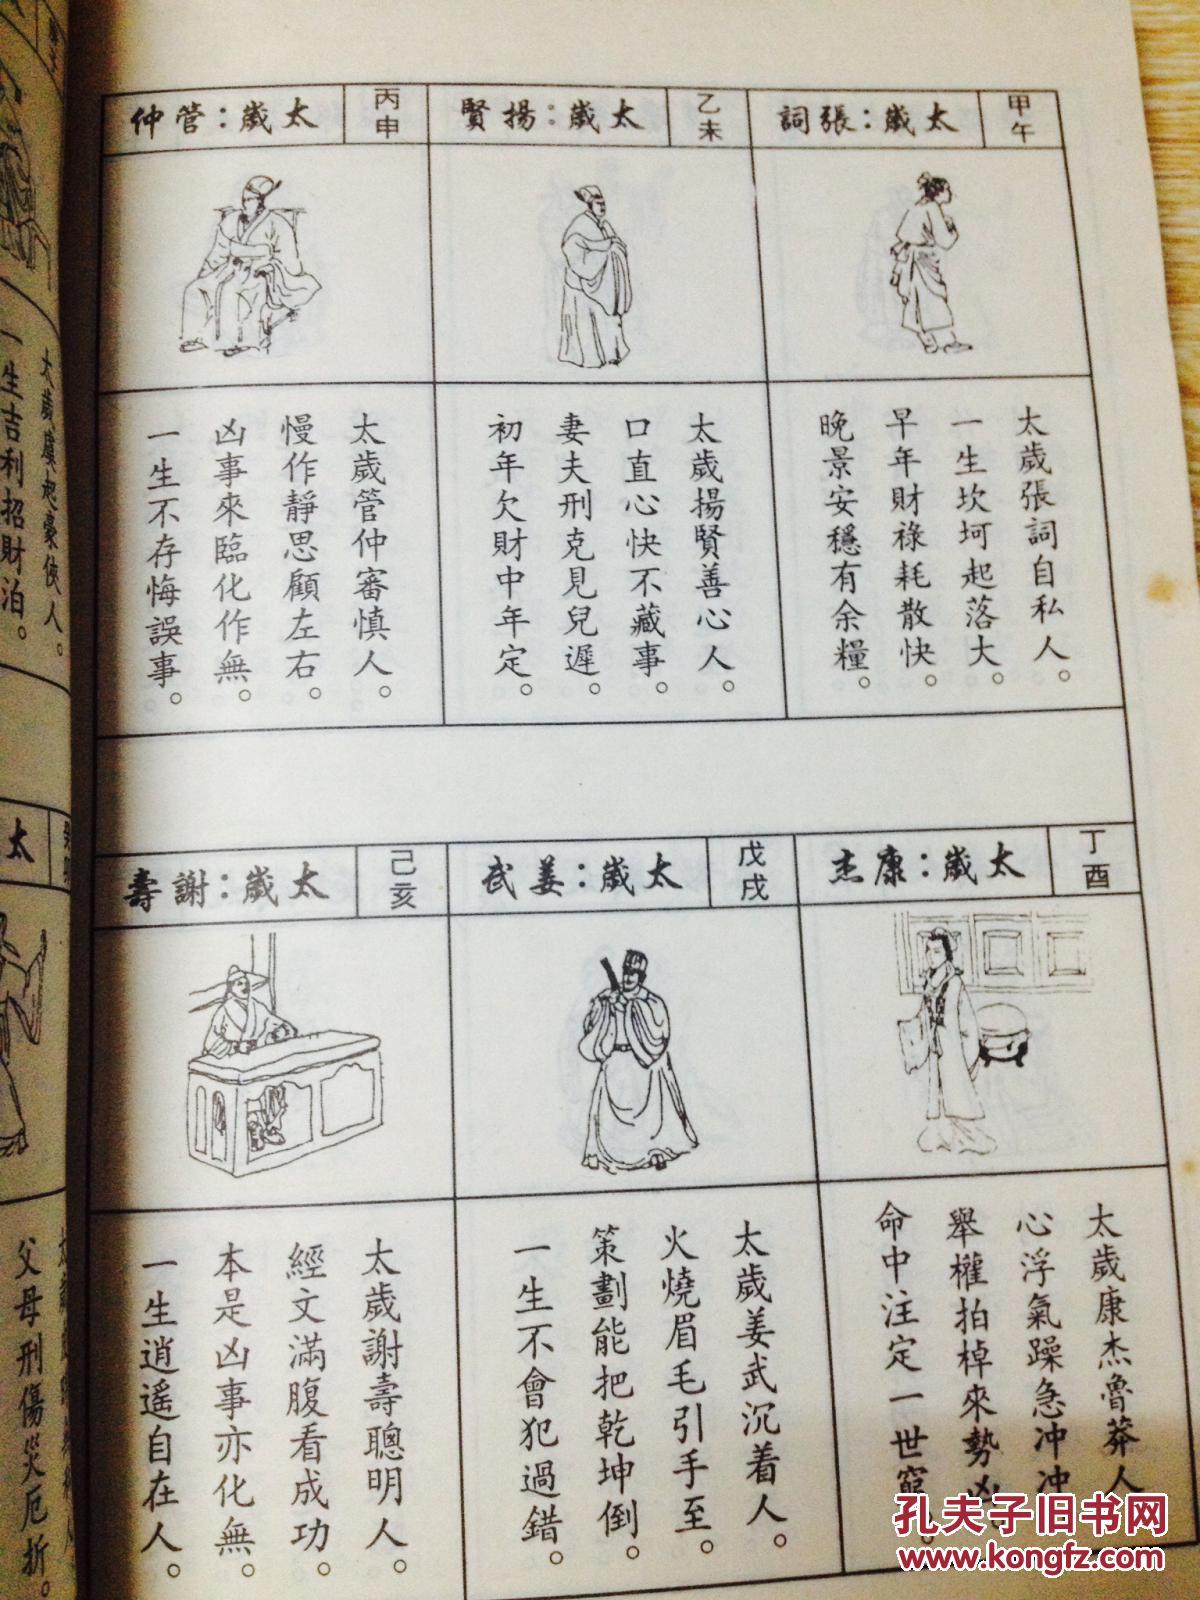 甲午
太歲：張詞
太歲張詞自私人。
一生坎坷起落大。
早年財祿耗散快。
晚景安穩有余糧。
乙未
太歲：揚賢
太歲揚賢善心人。
口直心快不藏事。
妻夫刑克見兒遲。
初年欠財中年定。
丙申
太歲：管仲
太歲管仲審慎人。
慢作靜思顧左右。
凶事來臨化作無。
一生不存悔誤事。
丁酉
太歲：康杰
太歲康杰魯莽人
心浮氣躁急冲冲
舉權拍棹來勢凶
命中注定一世窮。
戊戌
太歲：姜武
太歲姜武沉着人。
火燒眉毛引手至。
策劃能把乾坤倒。
一生不會犯過錯。
己亥
太歲：謝壽
太歲謝壽聰明人。
經文滿腹看成功。
本是凶事亦化無。
一生逍遥自在人。
太歲虞起豪俠人。
一生吉利招財泊。
太
父母刑傷災厄折。
孔夫子旧书网
www.kongfz.com